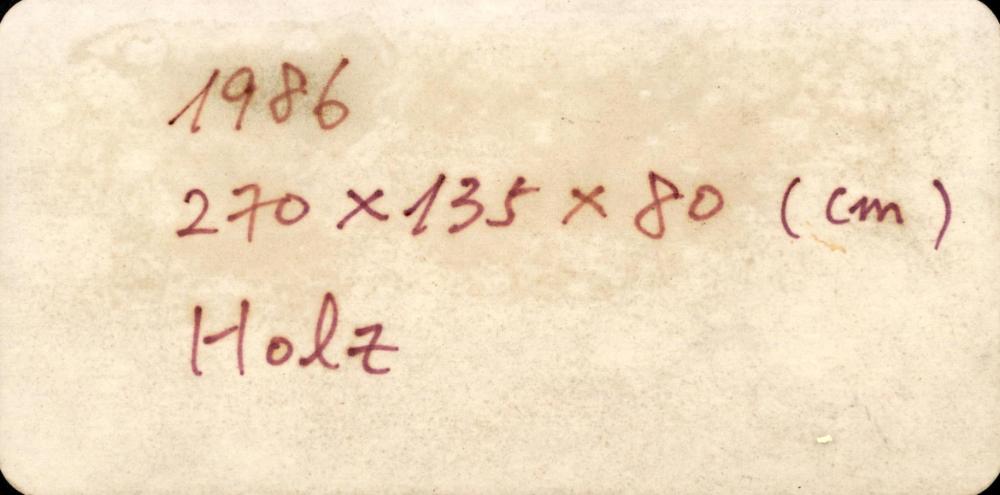 1986
270 × 135 × 80 (cm)
Holz